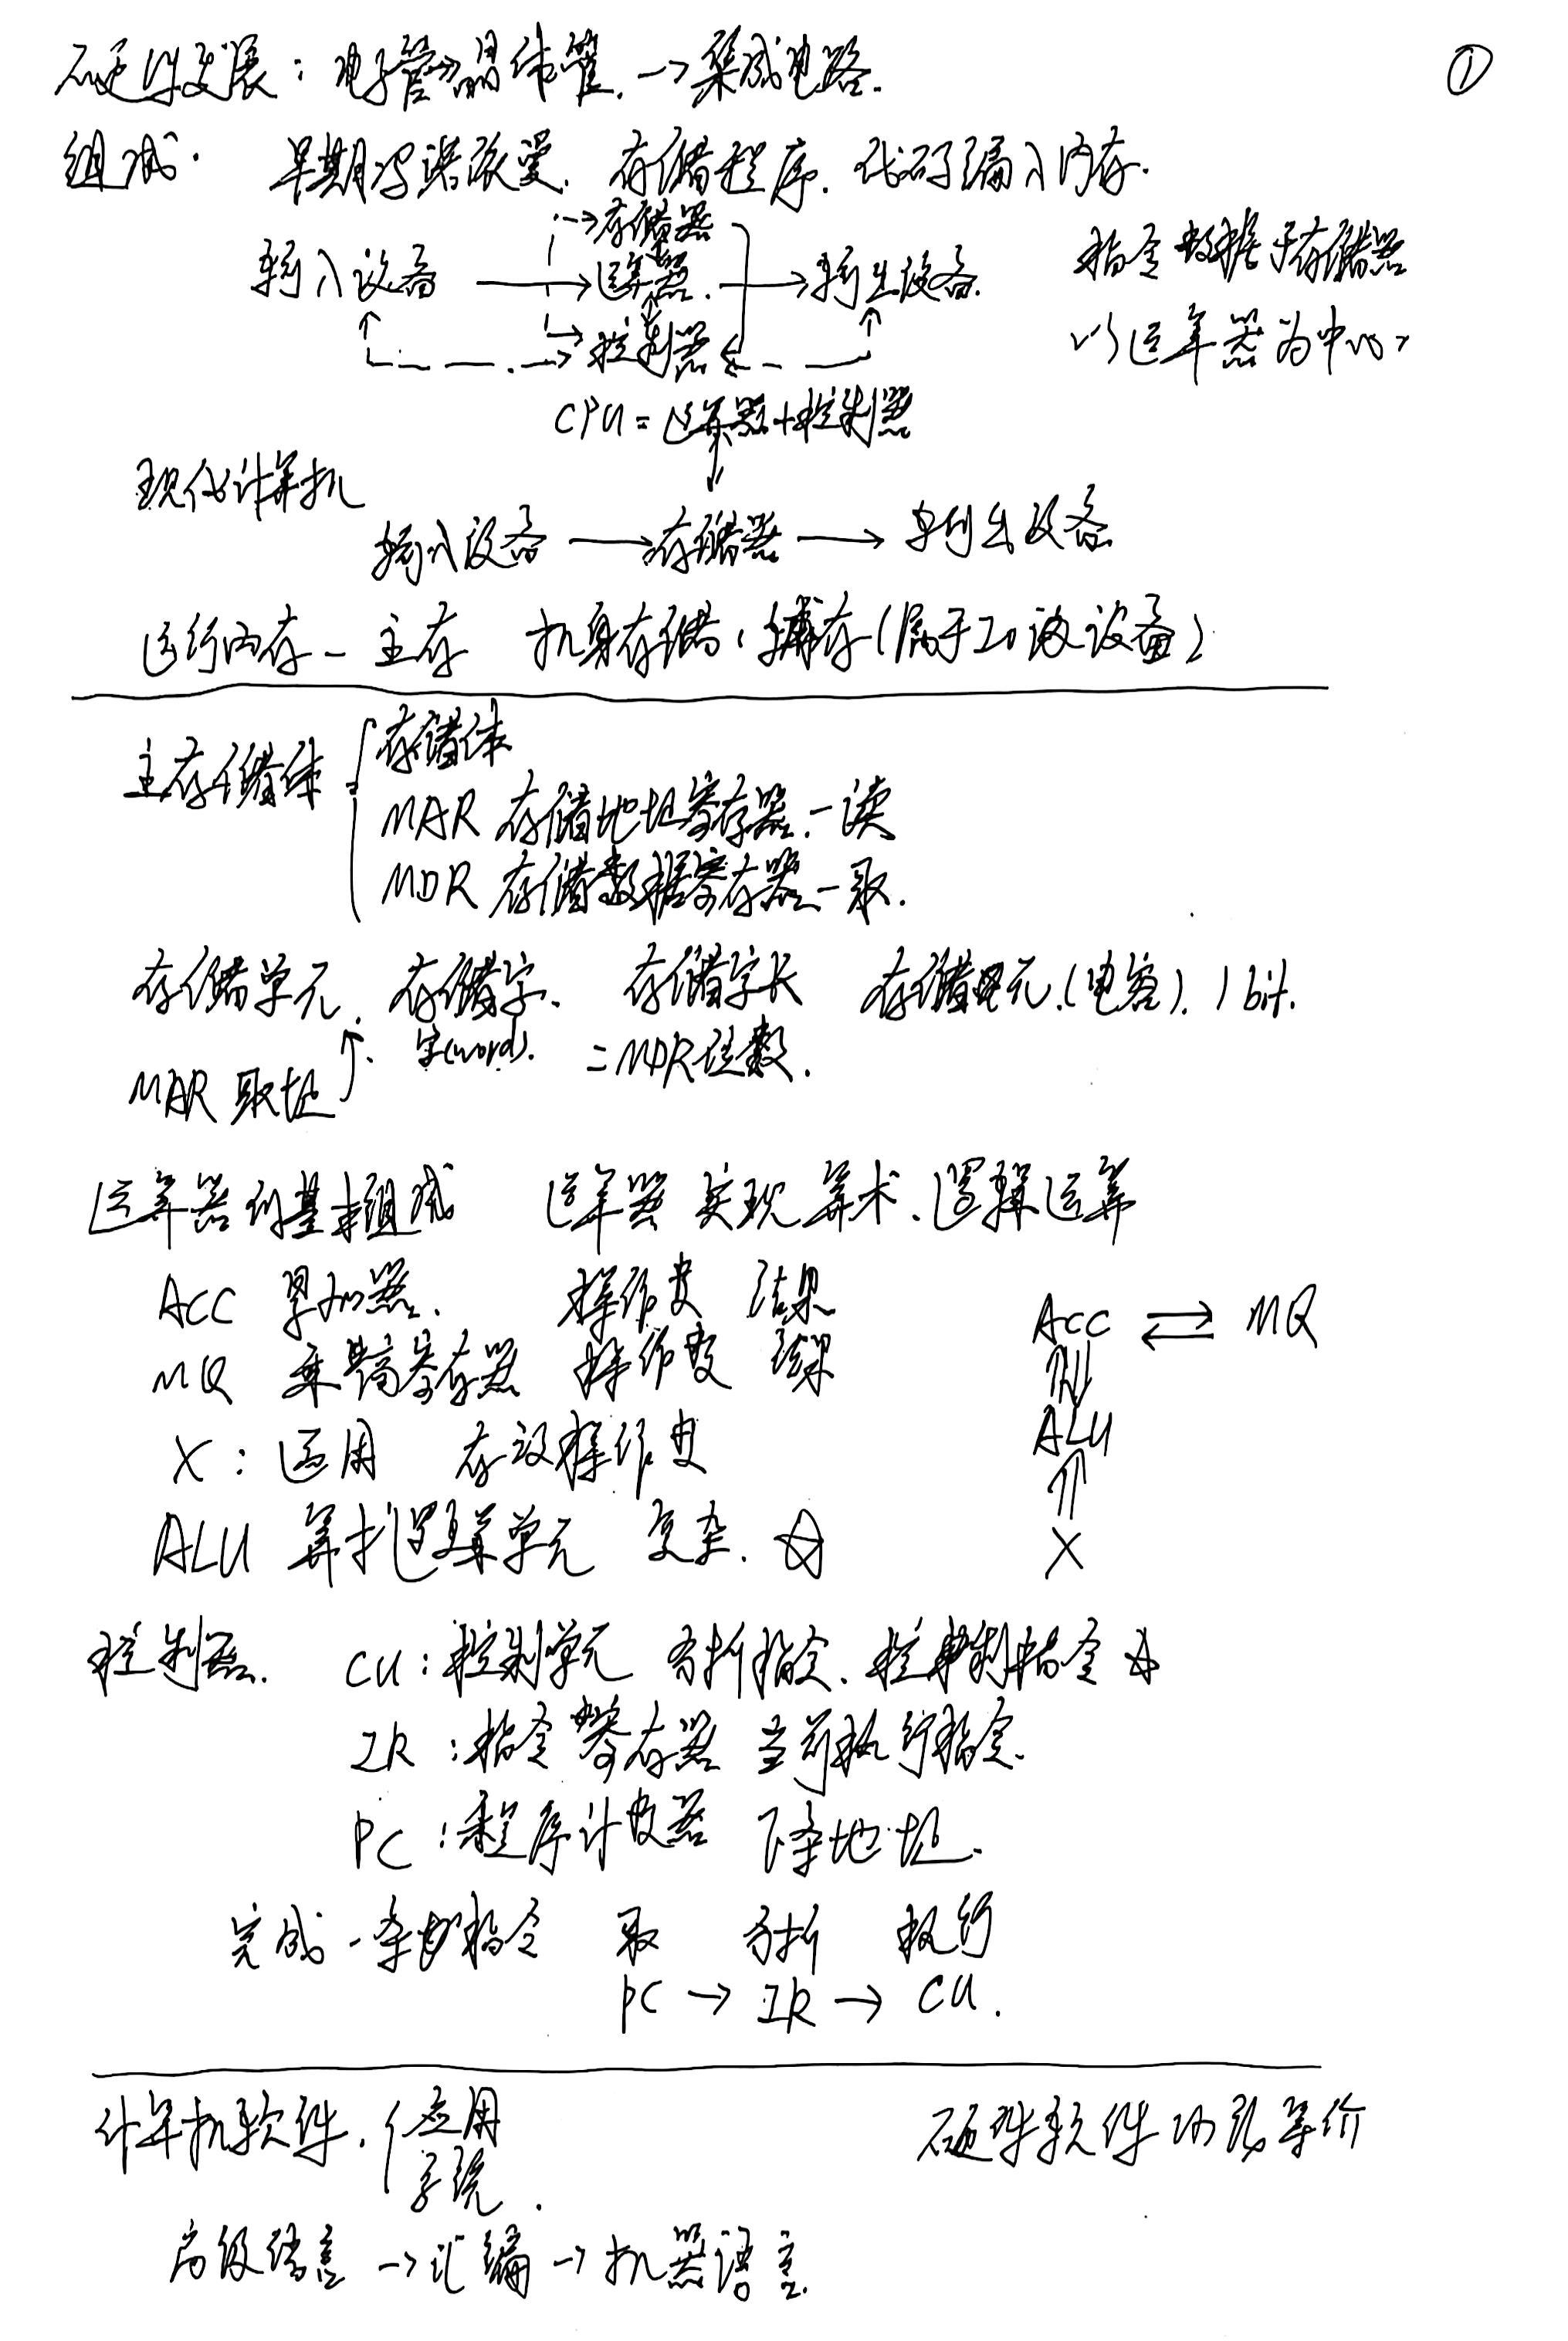 硬件发展：电子管→晶体管.→集成电路. ①
组成. 早期冯诺依曼. 存储程序. 代码编入内存.
→存储器
输入设备 → 运算器. → 输出设备. 指令数据于存储器
控制器 以运算器为中心
CPU=运算器+控制器
现代计算机
输入设备 → 存储器 → 输出设备
运行内存-主存 机身存储,辅存(属于IO设备)
主存储体 { 存储体
MAR 存储地址寄存器.-读
MDR 存储数据寄存器-取.
存储单元. 存储字. 存储字长 存储元.(电容). 1bit.
MAR 取址 ↑. 字(word). =MDR位数.
运算器的基本组成 运算器 实现 算术.逻辑运算
ACC 累加器. 操作数 结果
MQ 乘商寄存器 操作数 结果
X:通用 存放操作数
ALU 算术逻辑单元 复杂. ☆
ACC ⇄ MQ
ALU
X
控制器. CU:控制单元 分析指令. 控制指令 ☆
IR:指令寄存器 当前执行指令.
PC:程序计数器 下条地址.
完成一条指令 取 分析 执行
PC → IR → CU.
计算机软件. { 应用 硬件软件功能等价
系统.
高级语言 → 汇编 → 机器语言.